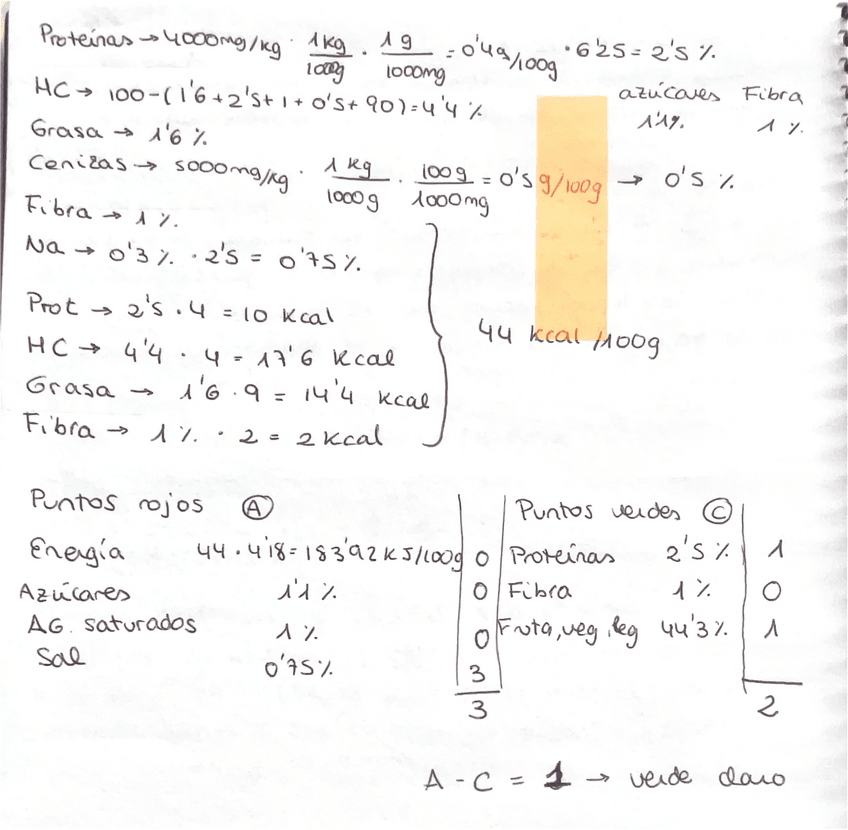 Proteínas → 4000mg/kg · 1kg/1000g · 1g/1000mg = 0'4g/100g · 6'25 = 2'5 %
HC → 100-(1'6+2'5+1+0'5+90)=4'4 %
azúcares Fibra
1'1% 1 %
Grasa → 1'6 %
Cenizas → 5000mg/kg · 1kg/1000g · 100g/1000mg = 0'5 g/100g → 0'5 %
Fibra → 1 %.
Na → 0'3 % · 2'5 = 0'75 %.
Prot → 2'5 · 4 = 10 kcal
HC → 4'4 4 = 17'6 kcal
44 kcal /100g
Grasa → 1'6 · 9 = 14'4 kcal
Fibra → 1 % · 2 = 2 kcal
Puntos rojos Ⓐ Puntos verdes Ⓒ
Energía 44 · 4'18 = 183'92 KJ/100g 0 Proteínas 2'5 % 1
Azúcares 1'1 % 0 Fibra 1 % 0
AG. saturados 1 % 0 Fruta, veg, leg 44'3 % 1
Sal 0'75% 3
3 2
A - C = 1 → verde claro